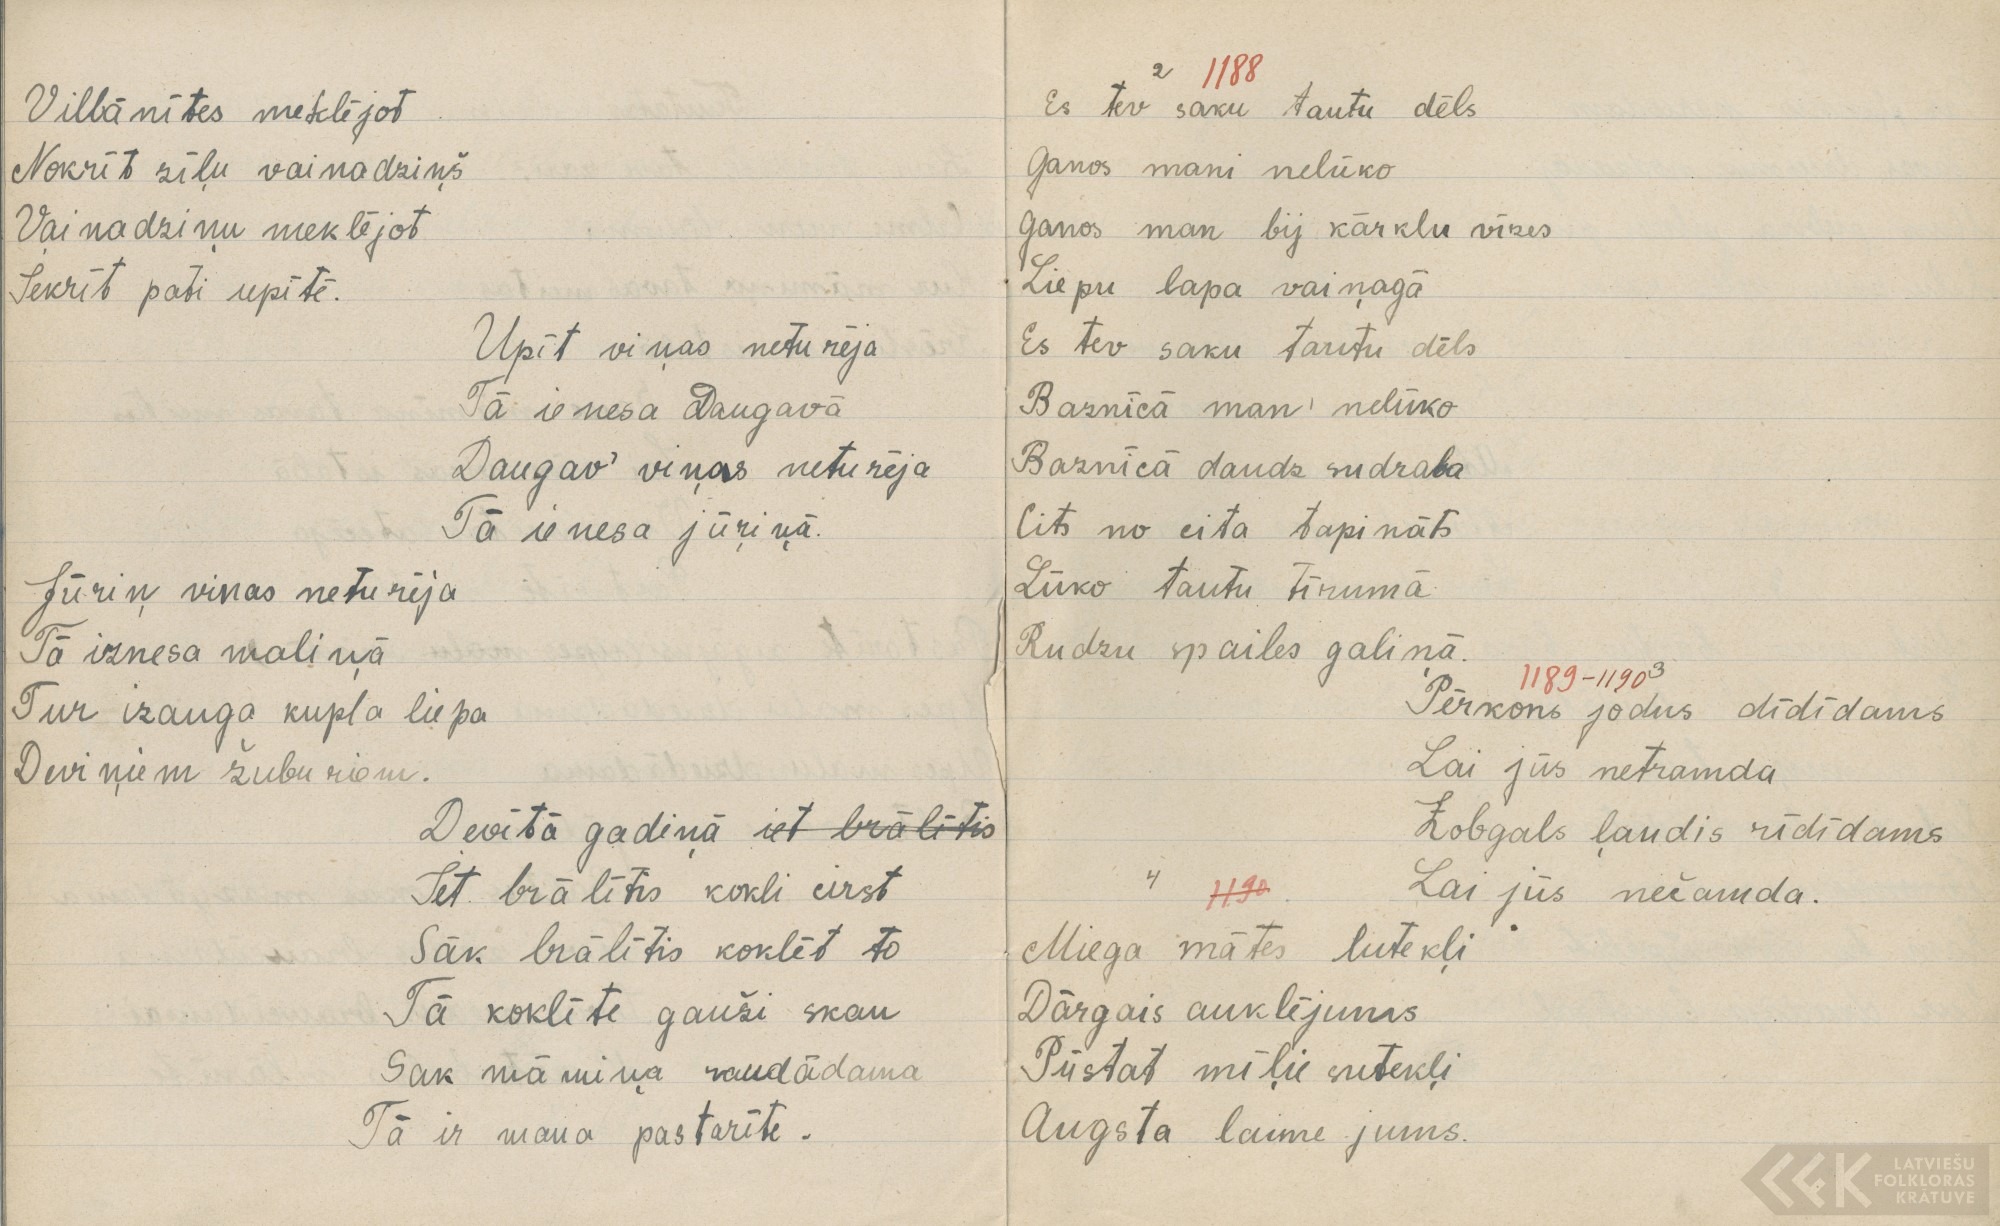 Villānītes meklējot
Nokrīt zīļu vainadziņš
Vainadziņu meklējot
Iekrīt pati upītē.
Upīt viņas neturēja
Tā ienesa Daugavā
Daugav' viņas neturēja
Tā ienesa jūŗiņā.
Jūriņ viņas neturēja
Tā iznesa maliņā
Tur izauga kupla liepa
Deviņiem žuburiem.
Devītā gadiņā iet brālītis
Iet brālītis kokli cirst
Sāk brālītis koklēt to
Tā koklīte gauži skan
Sak māmiņa raudādama
Tā ir mana pastarīte.
2 1188
Es tev saku tautu dēls
Ganos mani nelūko
Ganos man bij kārklu vīzes
Liepu lapa vaiņagā
Es tev saku tautu dēls
Baznīcā man' nelūko
Baznīcā daudz sudraba
Cits no cita tapināts
Lūko tautu tīrumā
Rudzu spailes galiņā.
1189-1190 3
Pērkons jodus dīdīdams
Lai jūs netramda
Zobgals ļaudis rīdīdams
Lai jūs nečamda.
4 1190
Miega mātes lutekļi
Dārgais auklējums
Pūstat mīļie sutekļi
Augsta laime jums.
LATVIEŠU
FOLKLORAS
KRĀTUVE